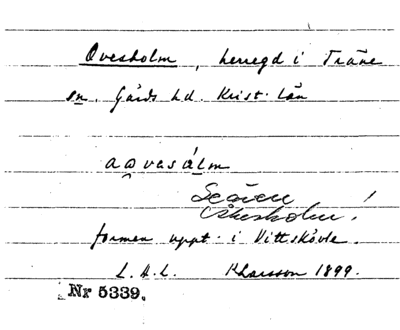 Ovesholm, herregd i Träne
sn. Gärds hd. Krist. län
aovasálm
Se även
Åhesholm!
formen uppt. i Vittskövle.
L.A.L. K Larsson 1899.
Nr 5339.